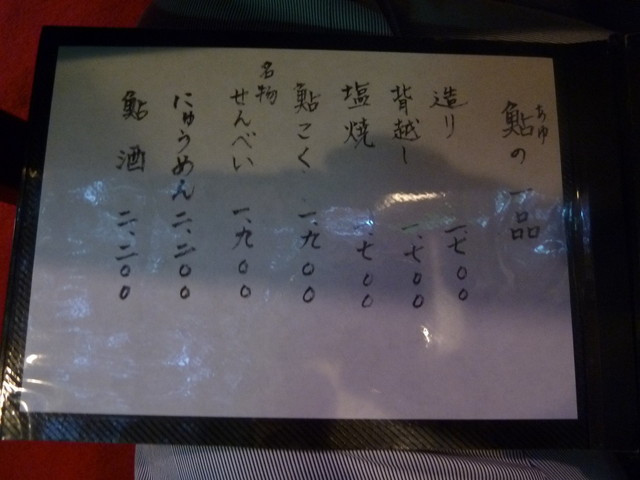 鮎の一品
あゆ
造り 一、七〇〇
背越し 一、七〇〇
塩焼 一、七〇〇
鮎こく 一、九〇〇
名物
せんべい 一、九〇〇
にゅうめん 二、二〇〇
鮎酒 二、二〇〇